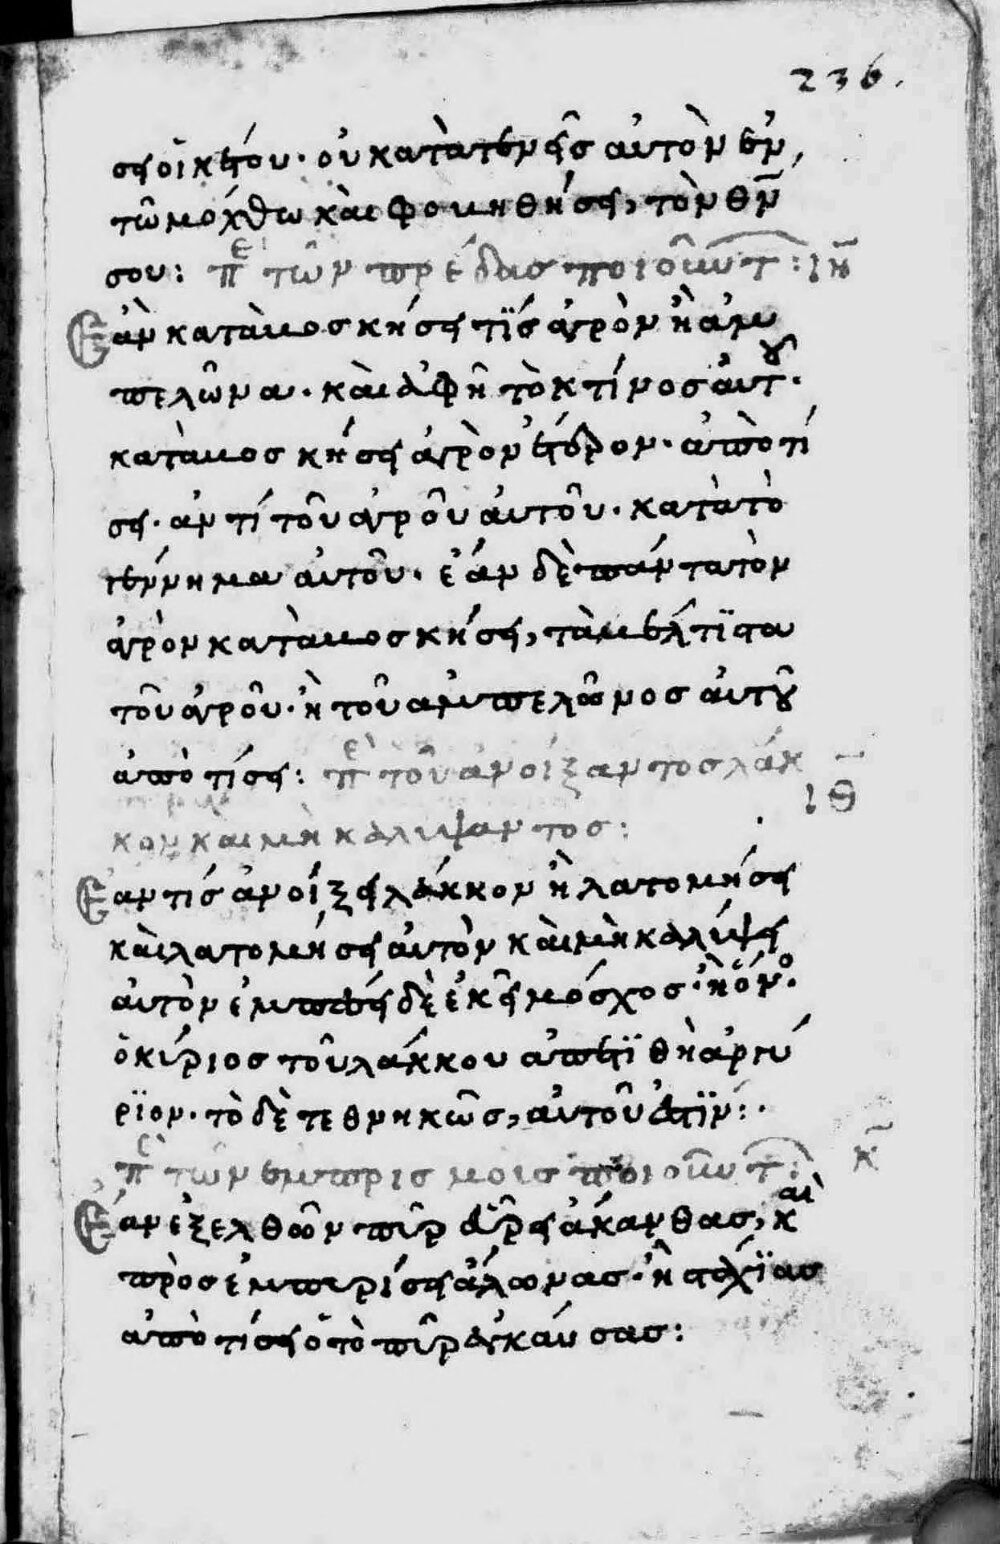 236.
σει οἰκέτου· οὐ κατατενεῖς αὐτὸν ἐν
τῶ μόχθω καὶ φοβηθήσει, τὸν θν̄
σου: πε τῶν πρέδας ποιούντ: ιη
Εὰν καταβοσκήσει τϊς ἀγρὸν ἢ ἀμ
πελῶνα· καὶ ἀφῆ τὸ κτίνος ἀυτου·
καταβοσκήσει ἀγρὸν ἕτερον· ἀποτί
σει· ἀντί τοῦ ἀγροῦ ἀυτοῦ· κατὰ τὸ
γέννημα ἀυτοῦ· ἐάν δὲ πάντα τὸν
ἀγρὸν καταβοσκήσει, τὰ βέλτϊστα
τοῦ ἀγροῦ· ἢ τοῦ ἀμπελῶνος ἀυτοῦ
ἀποτίσει: πε τοῦ ἀνοίξαντος λάκ
ιθ
κον και μὴ καλιψαντος:
Εαν τίς ἀνοίξει λάκκον ἢ λατομήσει
καὶ λατομήσει αὐτὸν καὶ μὴ καλίψει
ἀυτὸν ἐμπέσει δὲ ἐκεῖ μόσχος· ἢ ὄνο·
ὁ κίριος τοῦ λάκκου ἀποτϊθὴ ἀργύ
ρϊον· τὸ δὲ τεθνηκῶς, ἀυτοῦ ἐστϊν:·
πε τῶν ἐμπρισμοις ποιούντ: κ
Εάν ἐξελθῶν πῦρ εὕρει ἀκανθας, καὶ
πρὸς ἐμπιρίσει ἅλωνας· ἢ στάχϊας
ἀποτίσει ὁ τὸ πῦρ ἐκκάυσας: